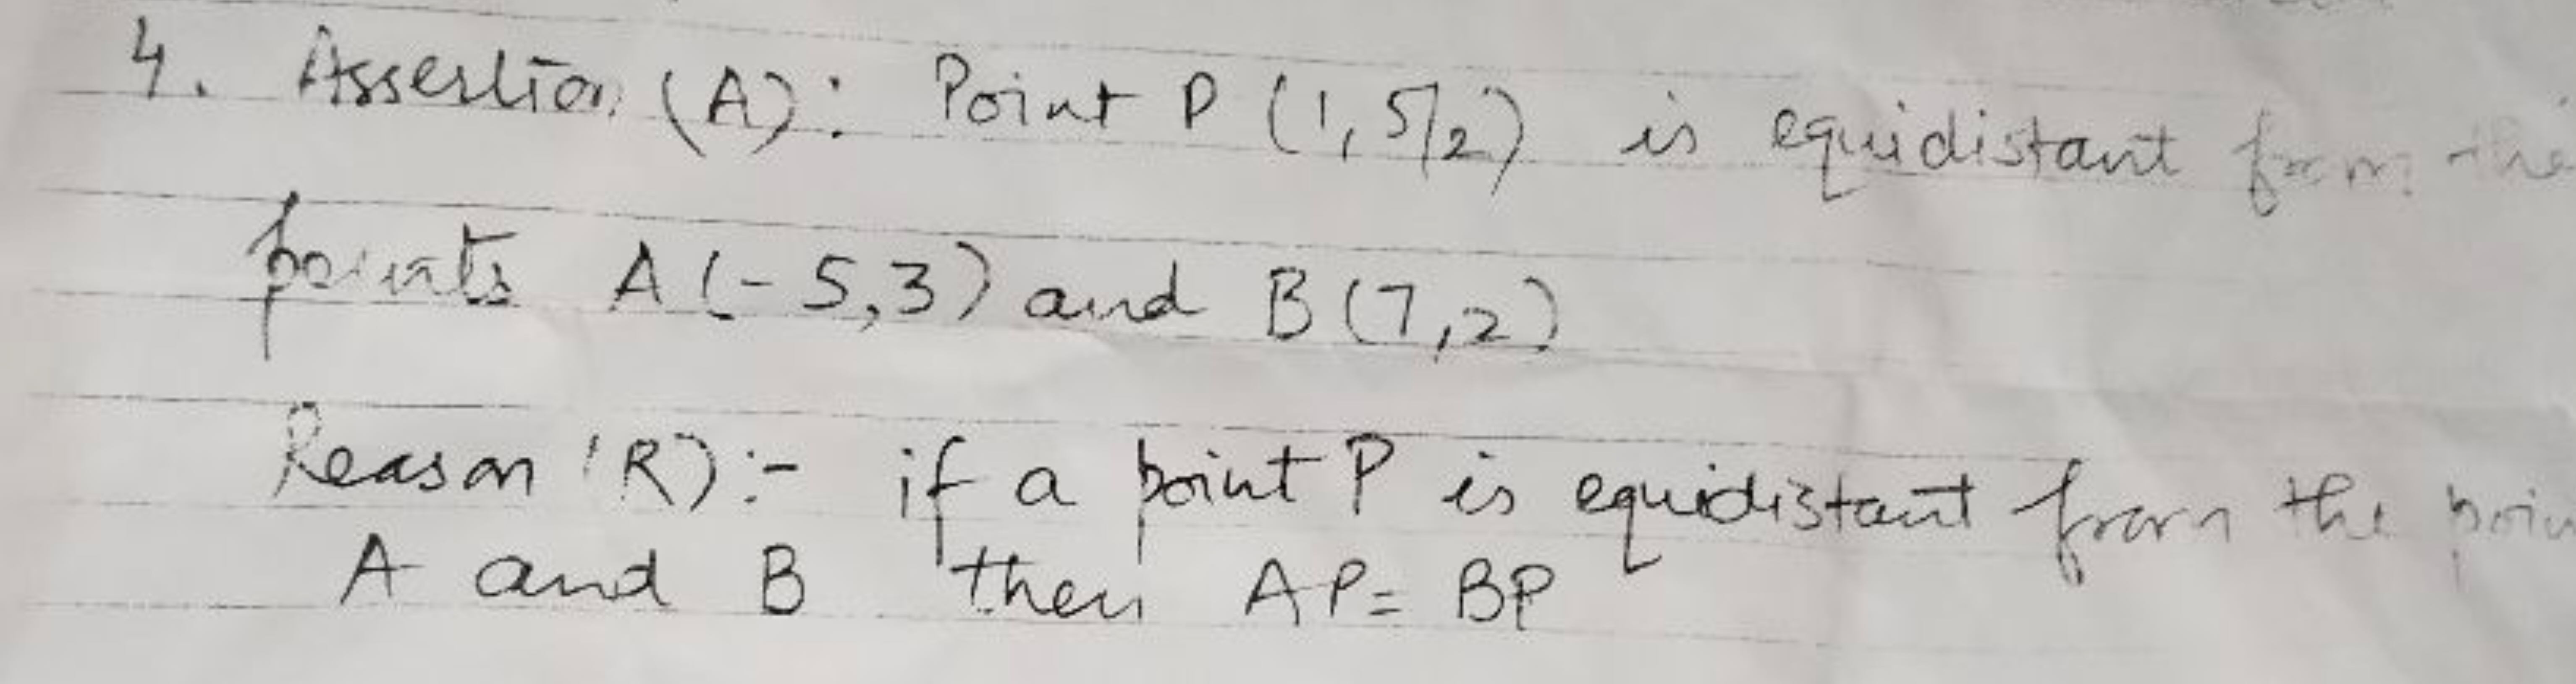 4. Assertion (A): Point P (1, 5/2) is equidistant from the
points A(-5,3) and B(7,2)
Reason (R):- if a point P is equidistant from the
A and B then AP= BP